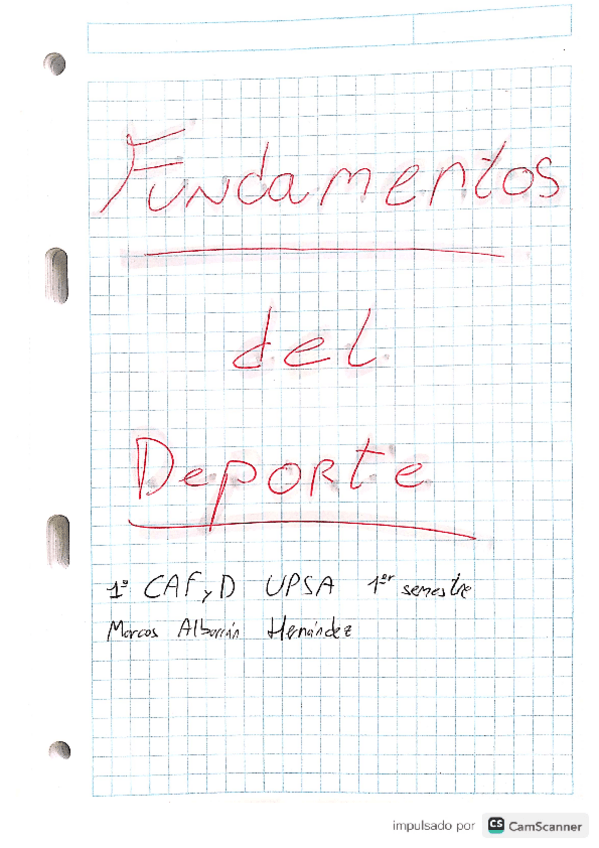 Fundamentos
del
Deporte
1º CAFyD UPSA 1er semestre
Marcos Albarrán Hernández
impulsado por CS CamScanner